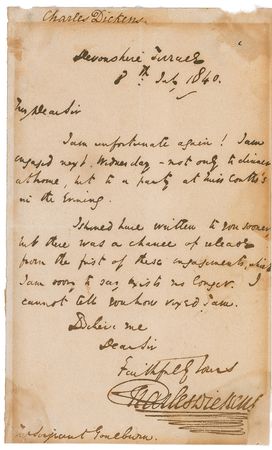 Charles Dickens.
Devonshire Terrace
8th July 1840.
My Dear Sir
I am unfortunate again! I am
engaged next Wednesday – not only to dinner
at home, but to a party at Miss Coutts's
in the Evening.
I should have written to you sooner
but there was a chance of release
from the first of these engagements, which
I am sorry to say, exists no longer. I
cannot tell you how vexed I am.
Believe me
Dear Sir
Faithfully Yours
Charles Dickens
Mr Serjeant Goulburn.